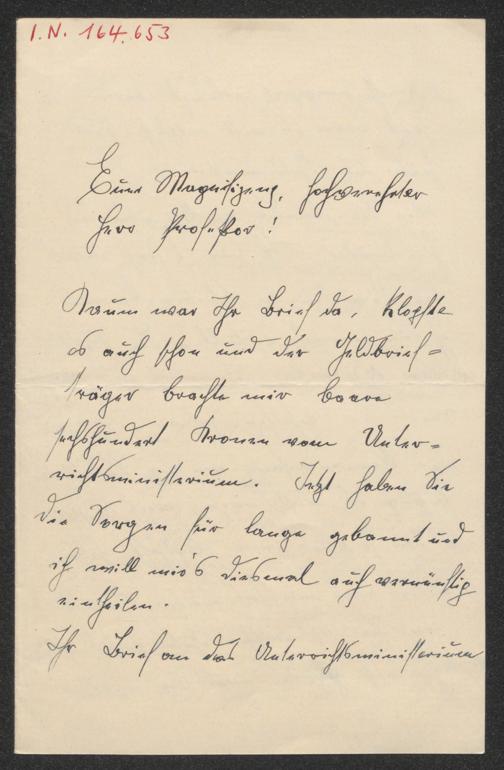 I.N. 164.653
Eure Magnifizenz, hochverehrter
Herr Professor!
Kaum war Ihr Brief da, klopfte
es auch schon und der Geldbrief=
träger brachte mir baare
sechshundert Kronen vom Unter=
richtsministerium. Jetzt haben Sie
die Sorgen für lange gebannt und
ich will mir's diesmal auch vernünftig
eintheilen.
Ihr Brief an das Unterrichtsministerium